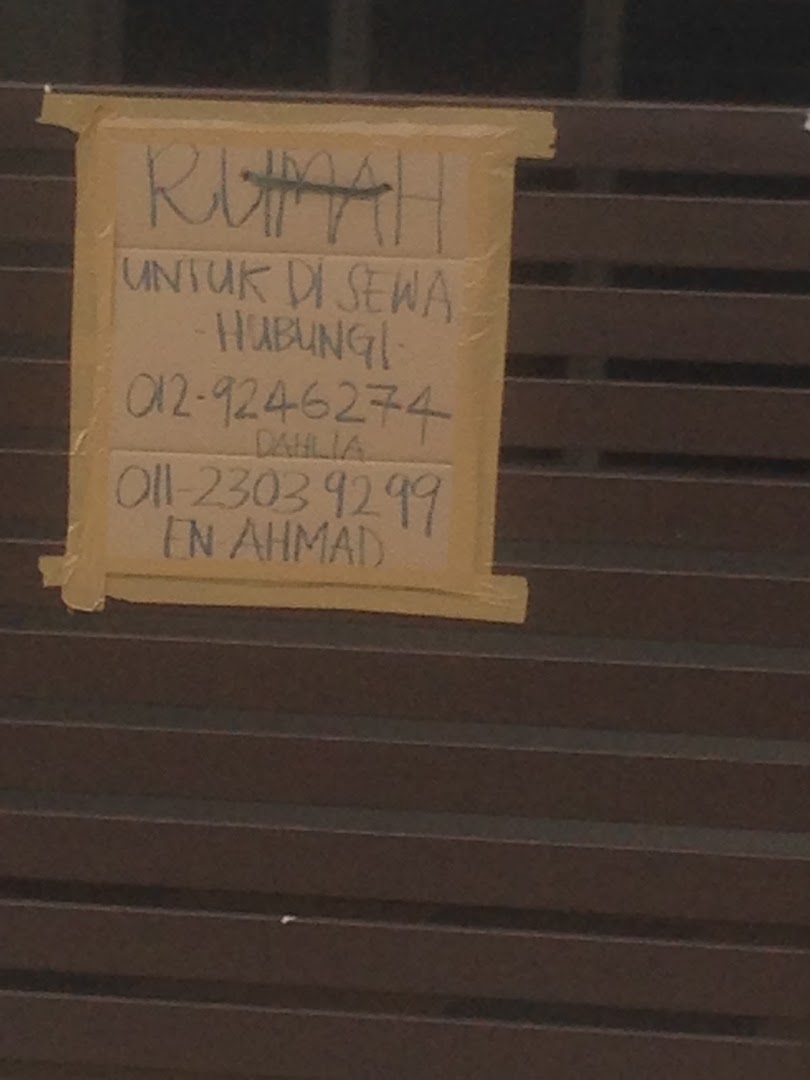 RUMAH
UNTUK DI SEWA
-HUBUNGI-
012-9246274
DAHLIA
011-23039299
EN AHMAD